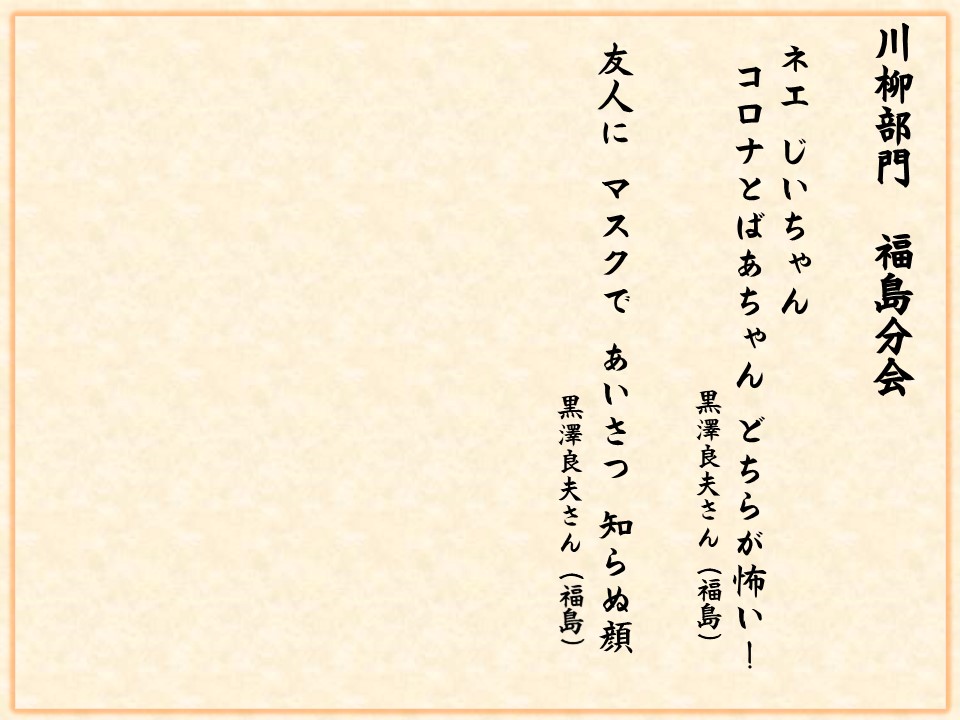 川柳部門　福島分会
ネエ じいちゃん
コロナとばあちゃん どちらが怖い！
黒澤良夫さん（福島）
友人に マスクで あいさつ 知らぬ顔
黒澤良夫さん（福島）